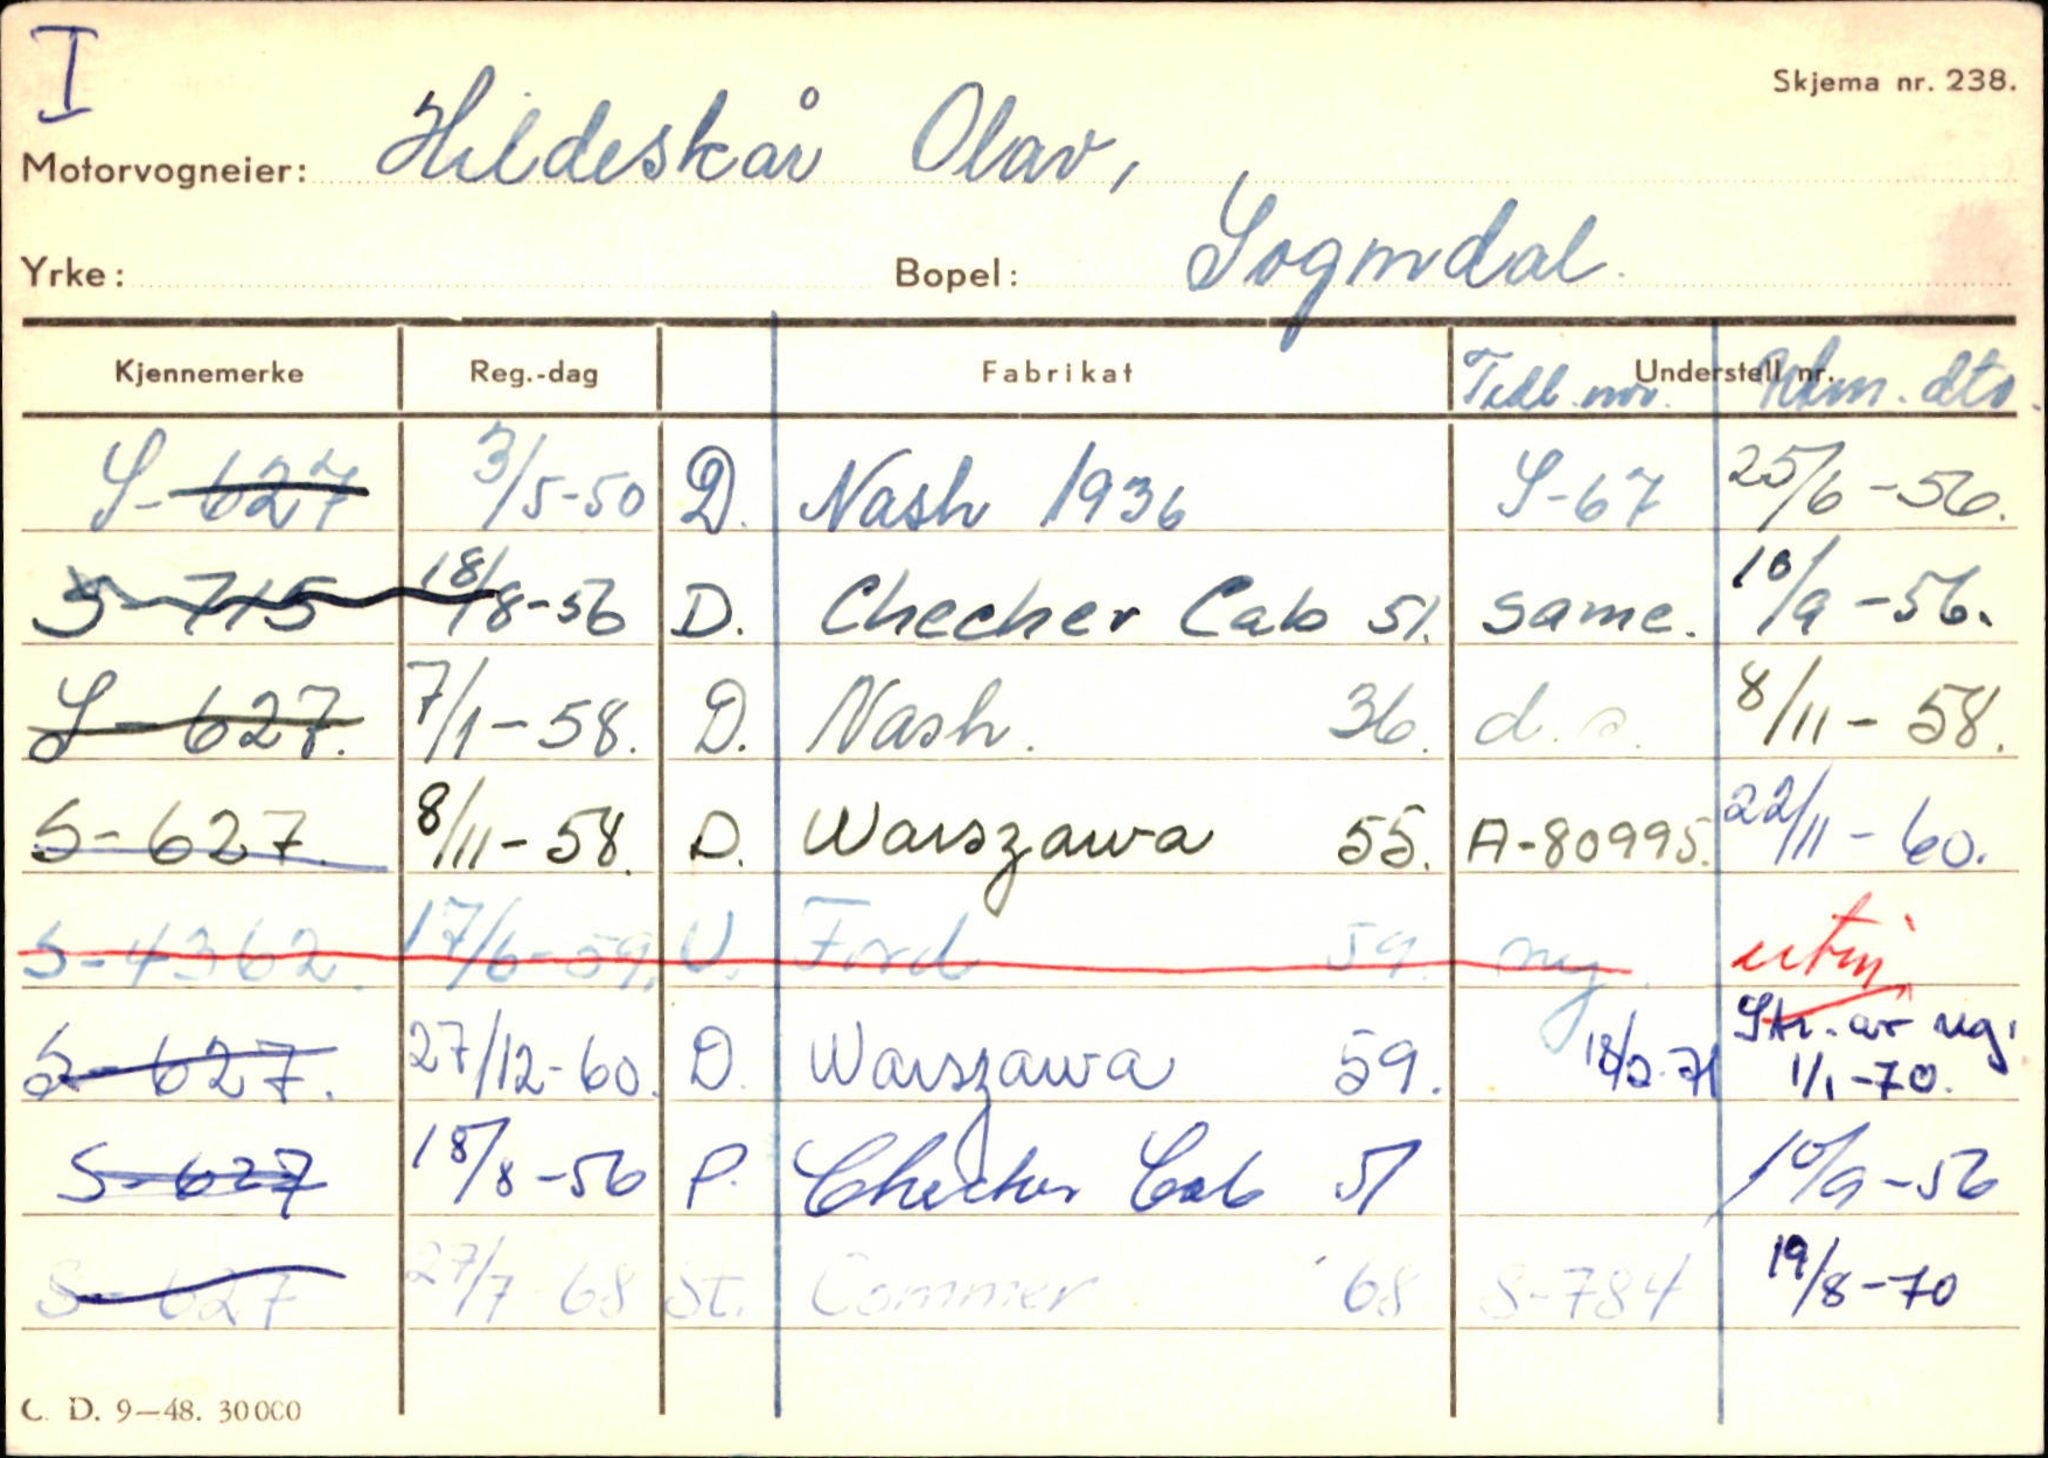 I
Skjema nr. 238.
Motorvogneier: Hildeskår Olav,
Yrke: Bopel: Sogndal.
Kjennemerke Reg.-dag Fabrikat Understell nr. Tidl. nr. dto.
S-627 3/5-50 D. Nash 1936 S-67 25/6-56.
S-715 18/8-56 D. Checher Cab 51. same. 10/9-56.
S-627. 7/1-58. D. Nash. 36. d.o. 8/11-58.
S-627. 8/11-58. D. Warszawa 55. A-80995. 22/11-60.
S-4362. 17/6-59. V. Ford 59. ny. utm
S-627. 27/12-60. D. Warszawa 59. 18/2-71 Str. av reg. 1/1-70.
S-627 18/8-56 P. Checker Cab 51 10/9-56
S-627 27/7-68 St. Commer 68 S-784 19/8-70
C. D. 9—48. 30000